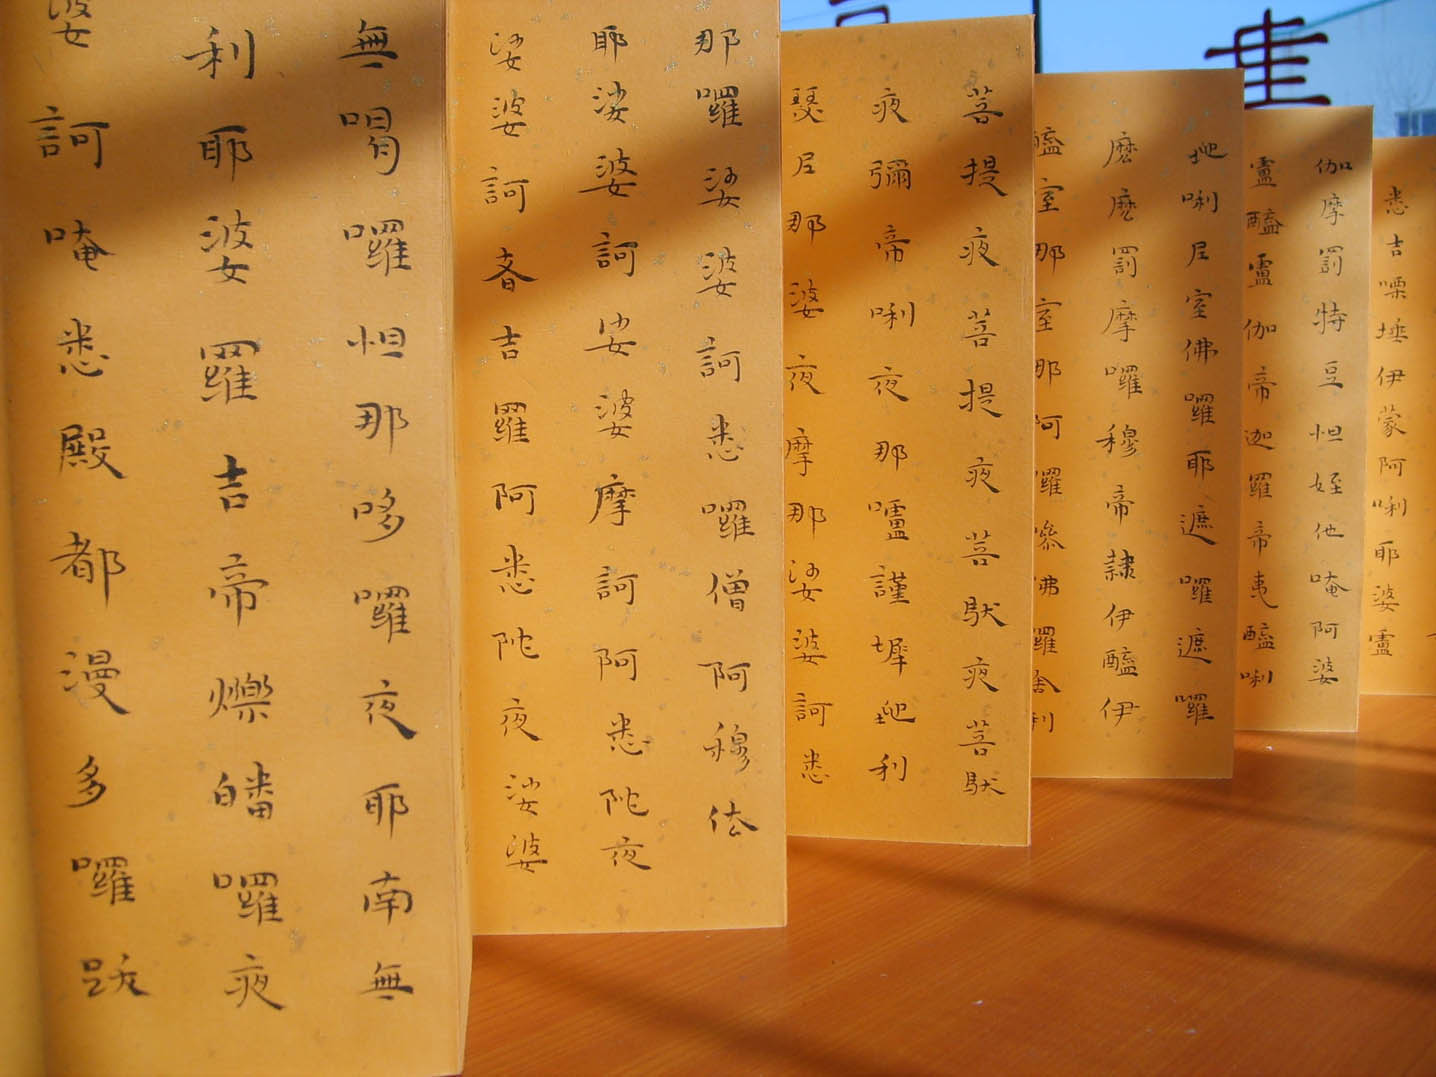 悉吉㗚埵伊蒙阿唎耶婆盧
伽摩罰特豆怛姪他唵阿婆
盧醯盧伽帝迦羅帝夷醯唎
地唎尼室佛囉耶遮囉遮囉
麼麼罰摩囉穆帝隸伊醯伊
醯室那室那阿囉嘇佛羅舍利
菩提夜菩提夜菩馱夜菩馱
夜彌帝唎夜那囉謹墀地利
瑟尼那婆夜摩那娑婆訶悉
那囉娑婆訶悉囉僧阿穆佉
耶娑婆訶娑婆摩訶阿悉陀夜
娑婆訶者吉羅阿悉陀夜娑婆
無喝囉怛那哆囉夜耶南無
利耶婆羅吉帝爍皤囉夜
婆訶唵悉殿都漫多囉跋